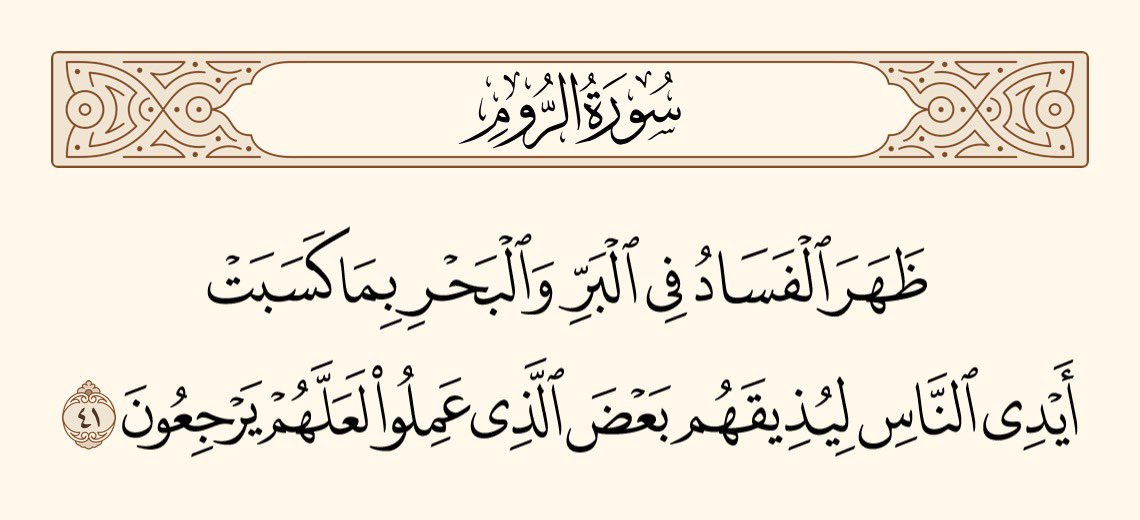 سُورَةُ الرُّومِ
ظَهَرَ ٱلْفَسَادُ فِى ٱلْبَرِّ وَٱلْبَحْرِ بِمَا كَسَبَتْ
أَيْدِى ٱلنَّاسِ لِيُذِيقَهُم بَعْضَ ٱلَّذِى عَمِلُوا۟ لَعَلَّهُمْ يَرْجِعُونَ ٤١